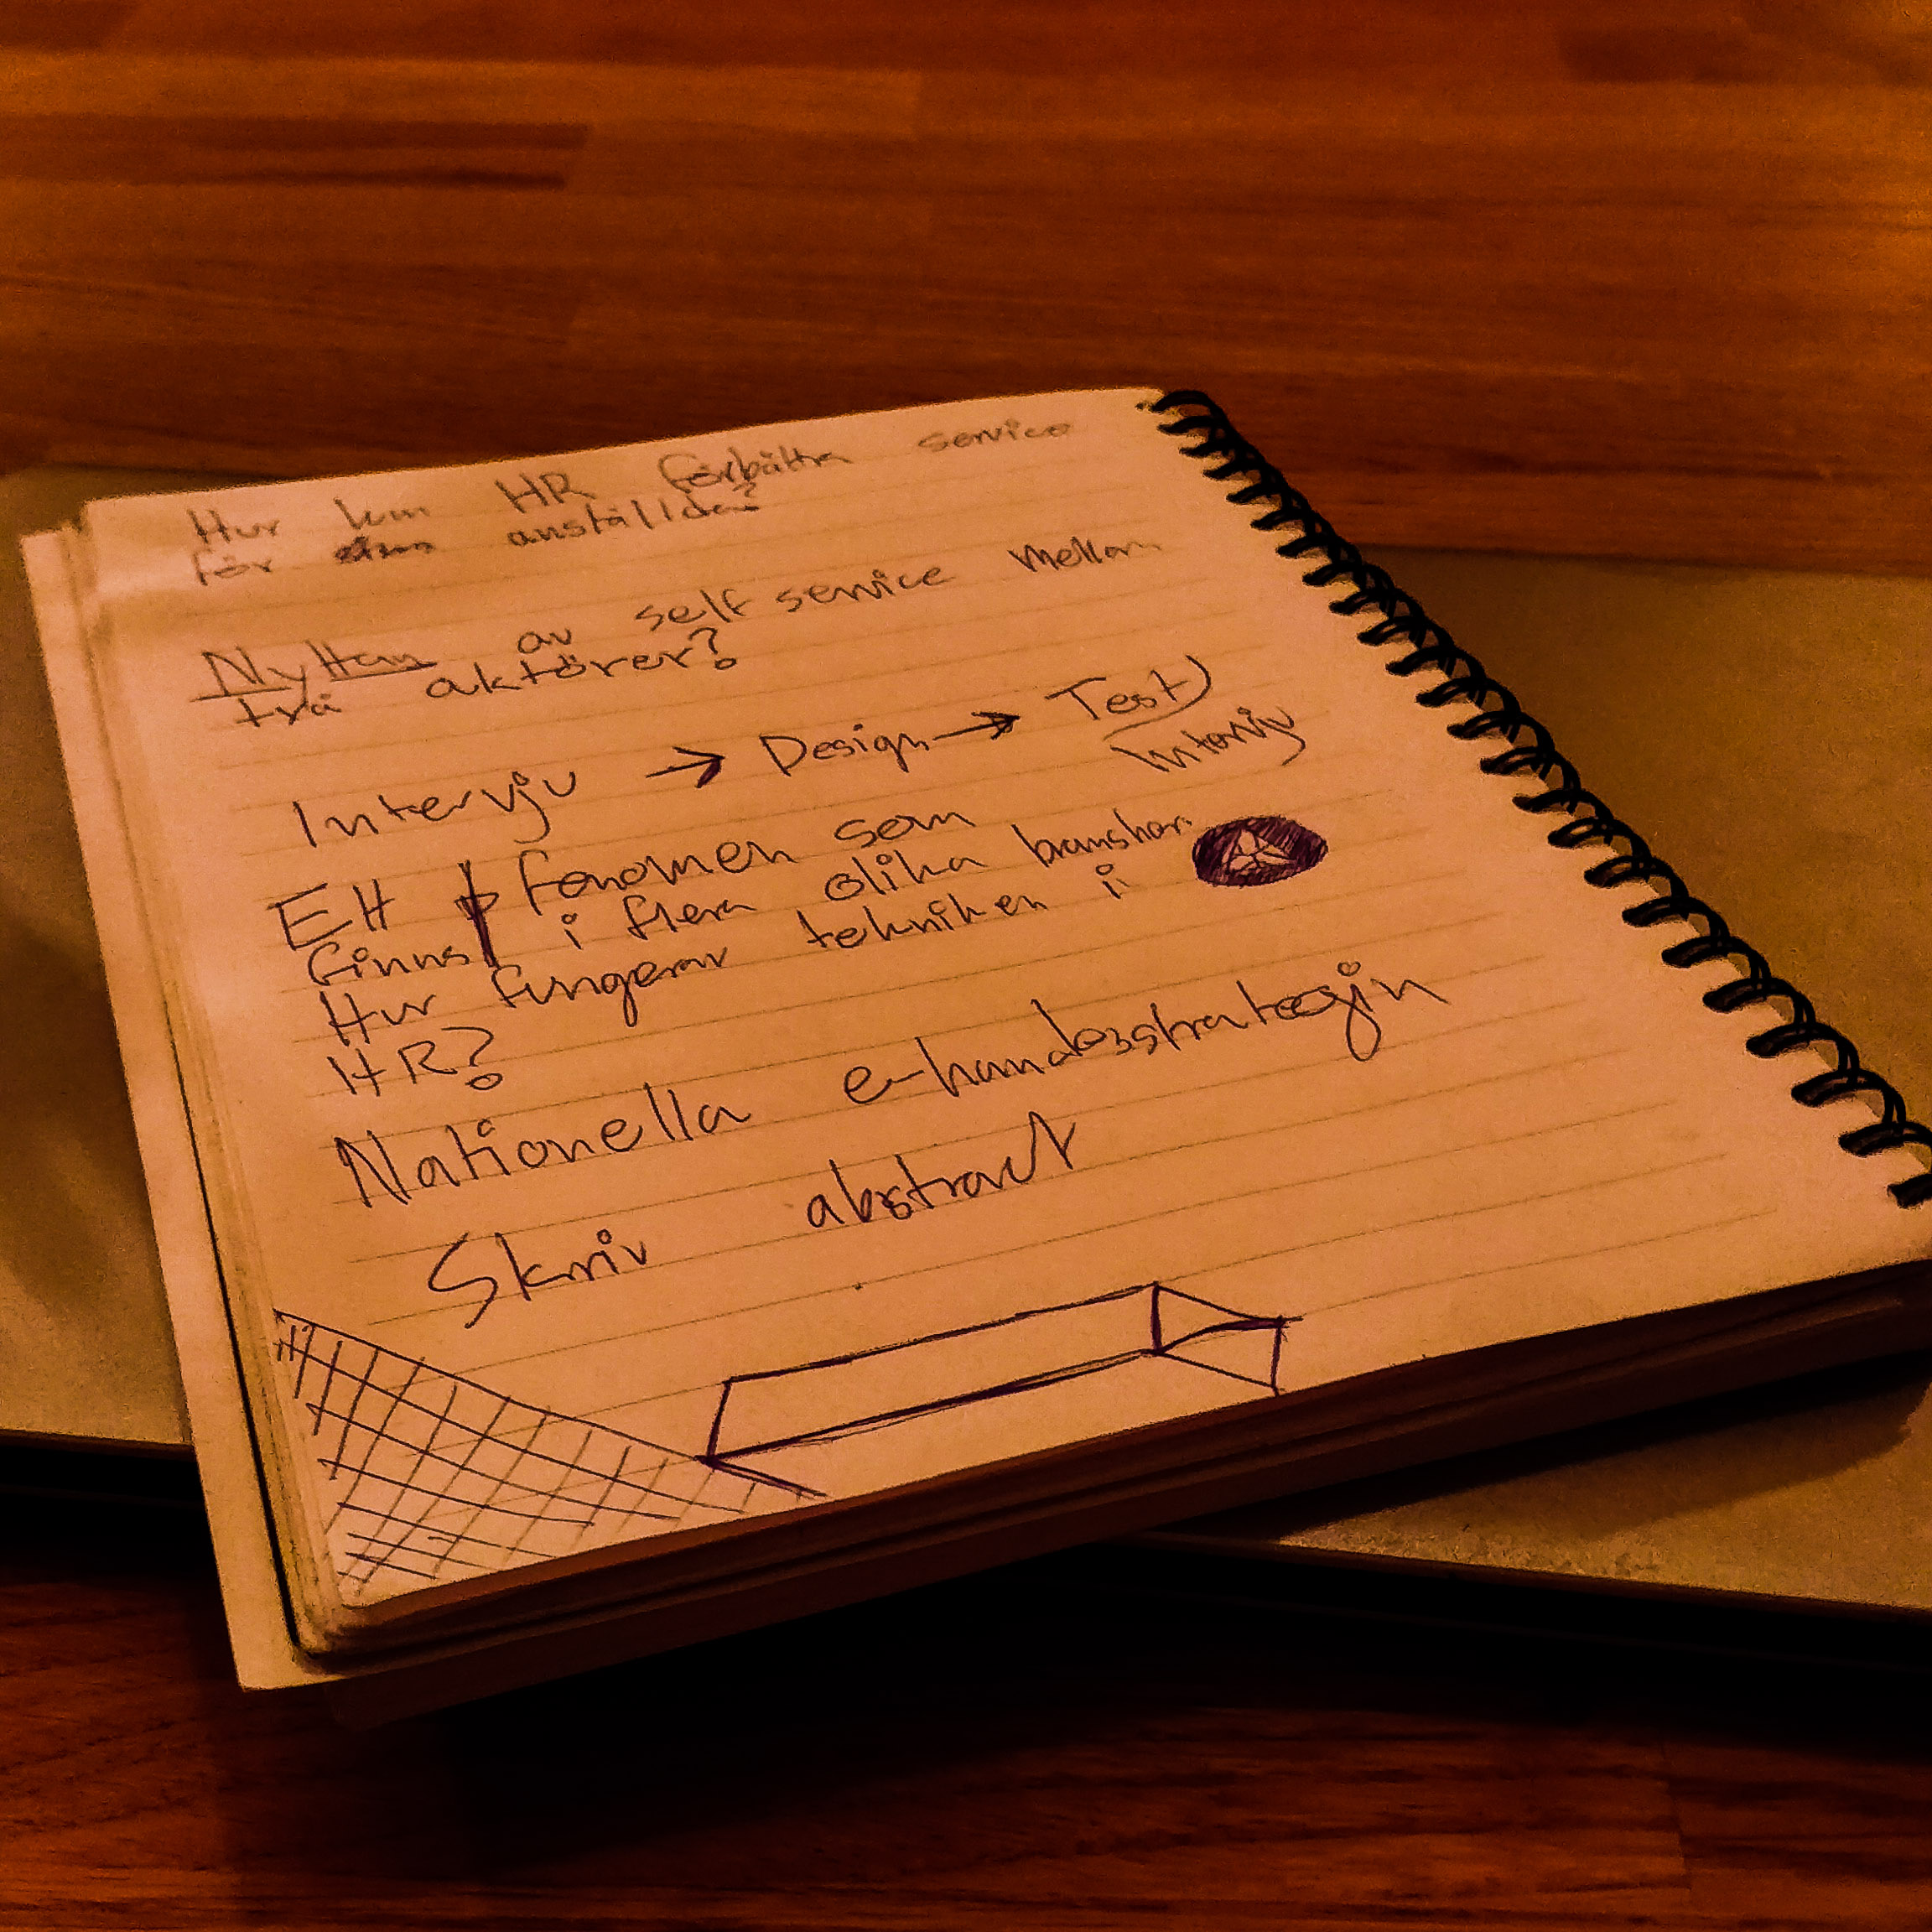 Hur kan HR förbättra service
för anställda?
Nyttan av self service mellan
två aktörer?
Intervju → Design → Test/
Intervju
Ett fenomen som
finns i flera olika branschar.
Hur fungerar tekniken i
HR?
Nationella e-handelsstrategin
Skriv abstract